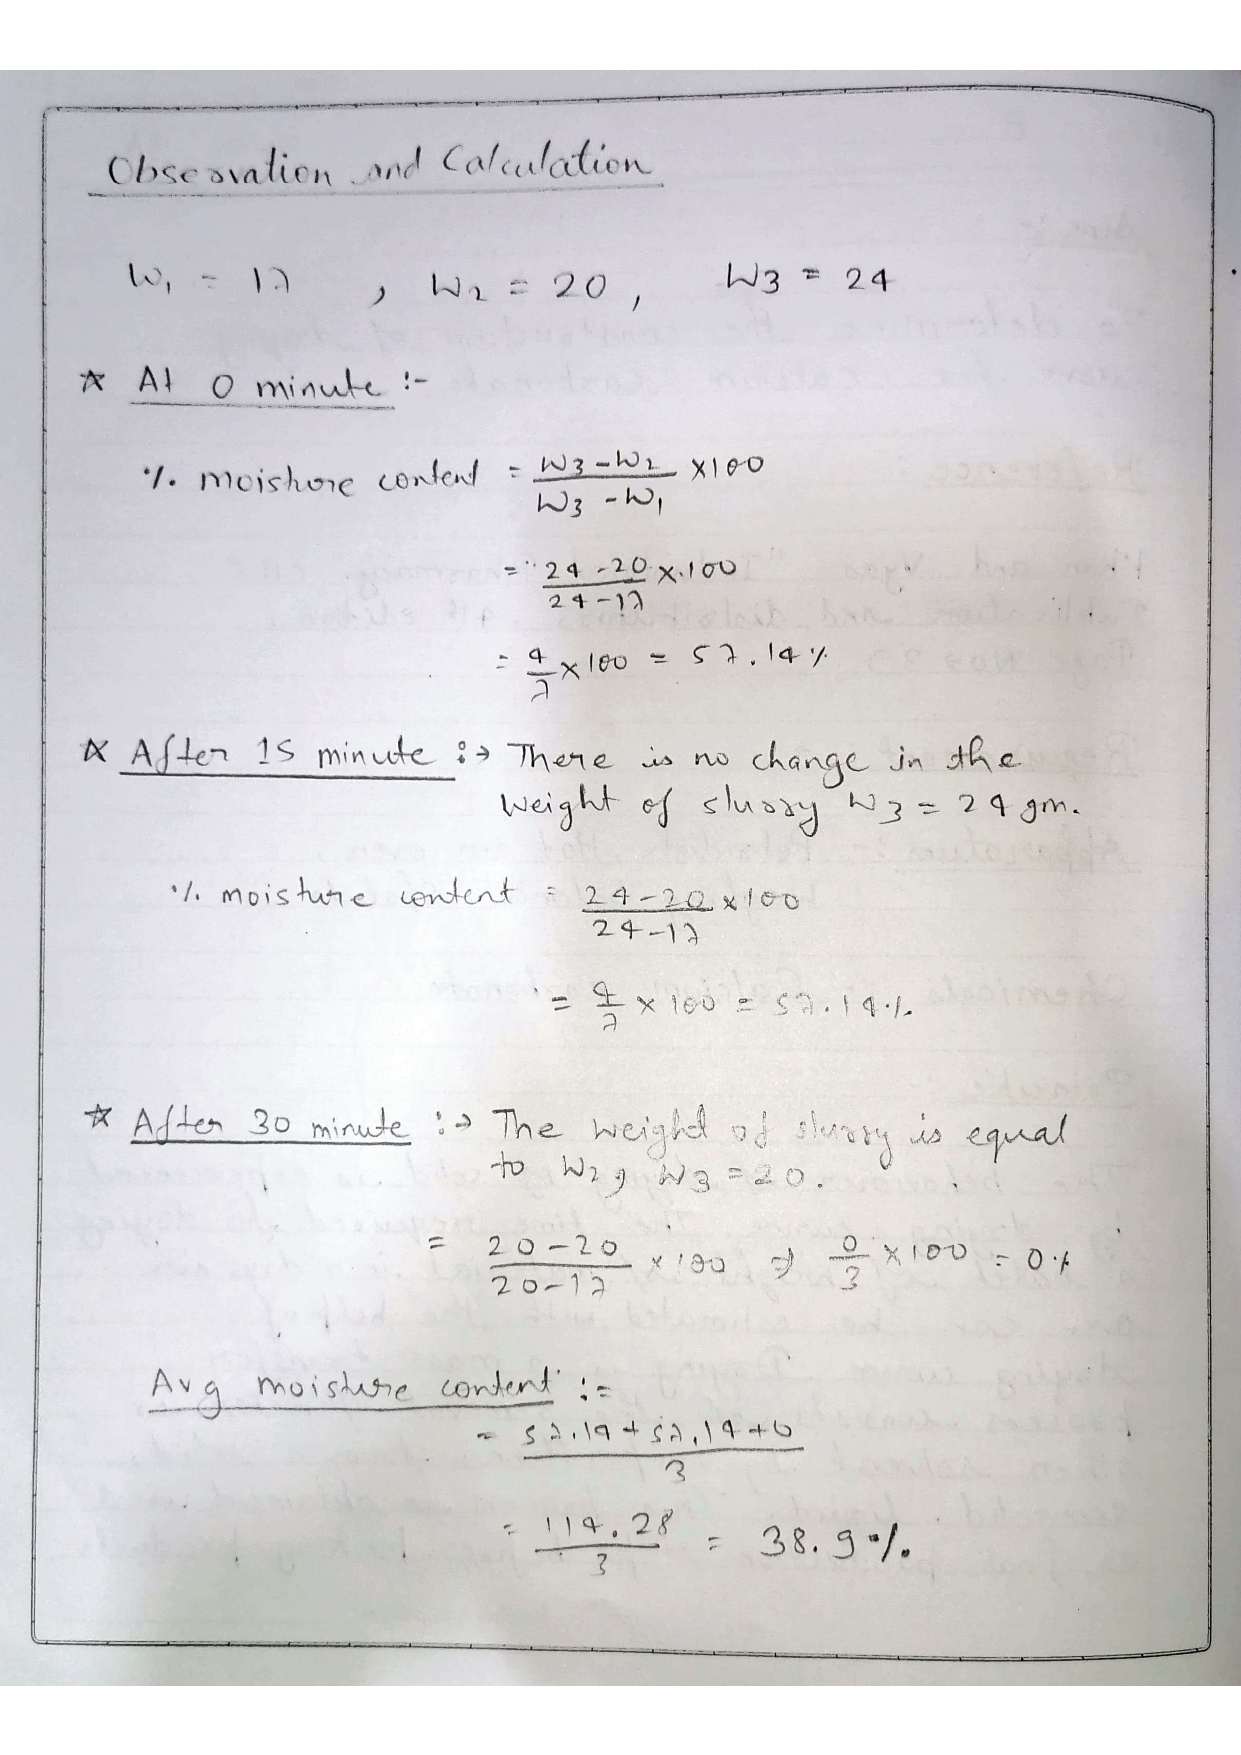 Observation and Calculation
W₁ = 17 , W₂ = 20 , W3 = 24
☆ At 0 minute :-
% moisture content = W3-W2/W3-W1 ×100
= 24-20/24-17 ×100
= 4/7 ×100 = 57.14%
☆ After 15 minute :→ There is no change in the
weight of slurry W3 = 24 gm.
% moisture content = 24-20/24-17 ×100
= 4/7 × 100 = 57.14%
☆ After 30 minute :→ The weight of slurry is equal
to W2, W3 = 20.
= 20-20/20-17 ×100 ⇒ 0/3 ×100 = 0%
Avg moisture content :=
= 57.14+57.14+0/3
= 114.28/3 = 38.9%